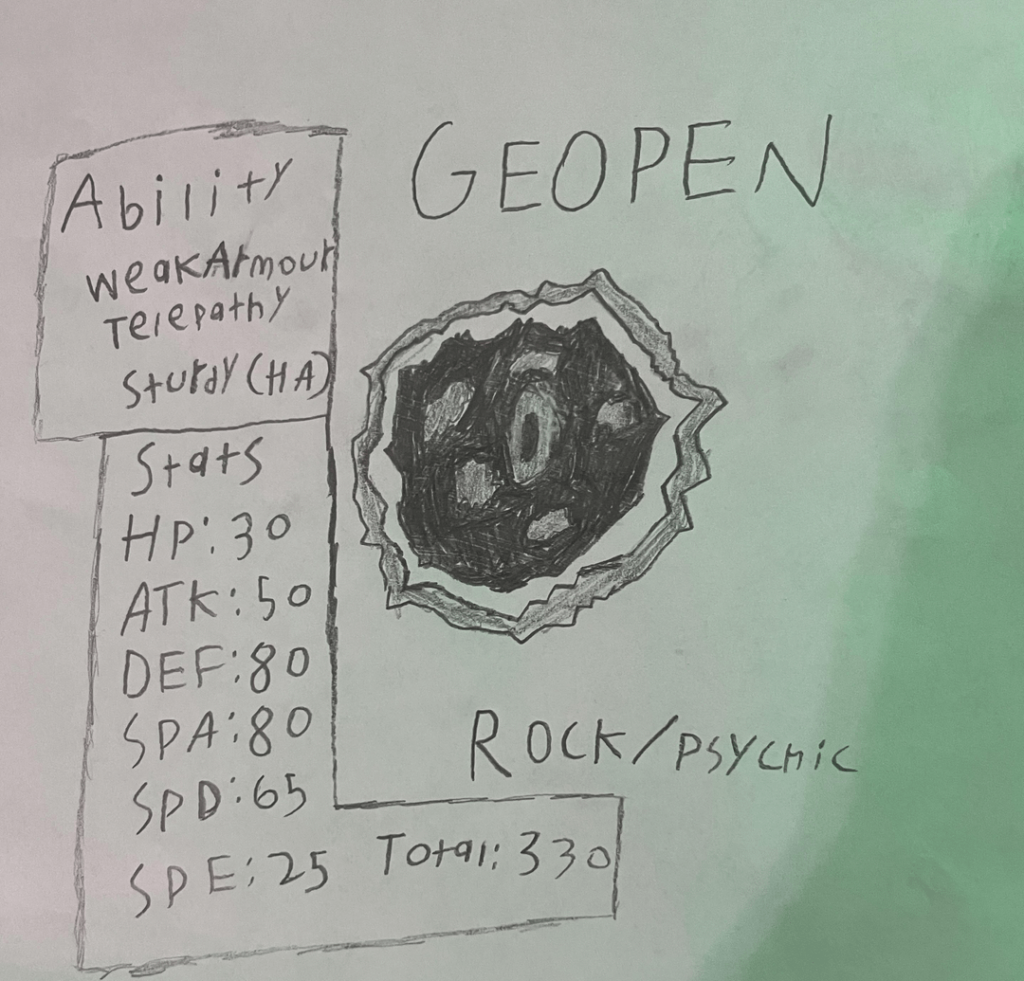 GEOPEN
Ability
WeakArmour
Telepathy
Sturdy (HA)
Stats
HP: 30
ATK: 50
DEF: 80
SPA: 80
SPD: 65
SPE: 25 Total: 330
ROCK/PSYCHIC